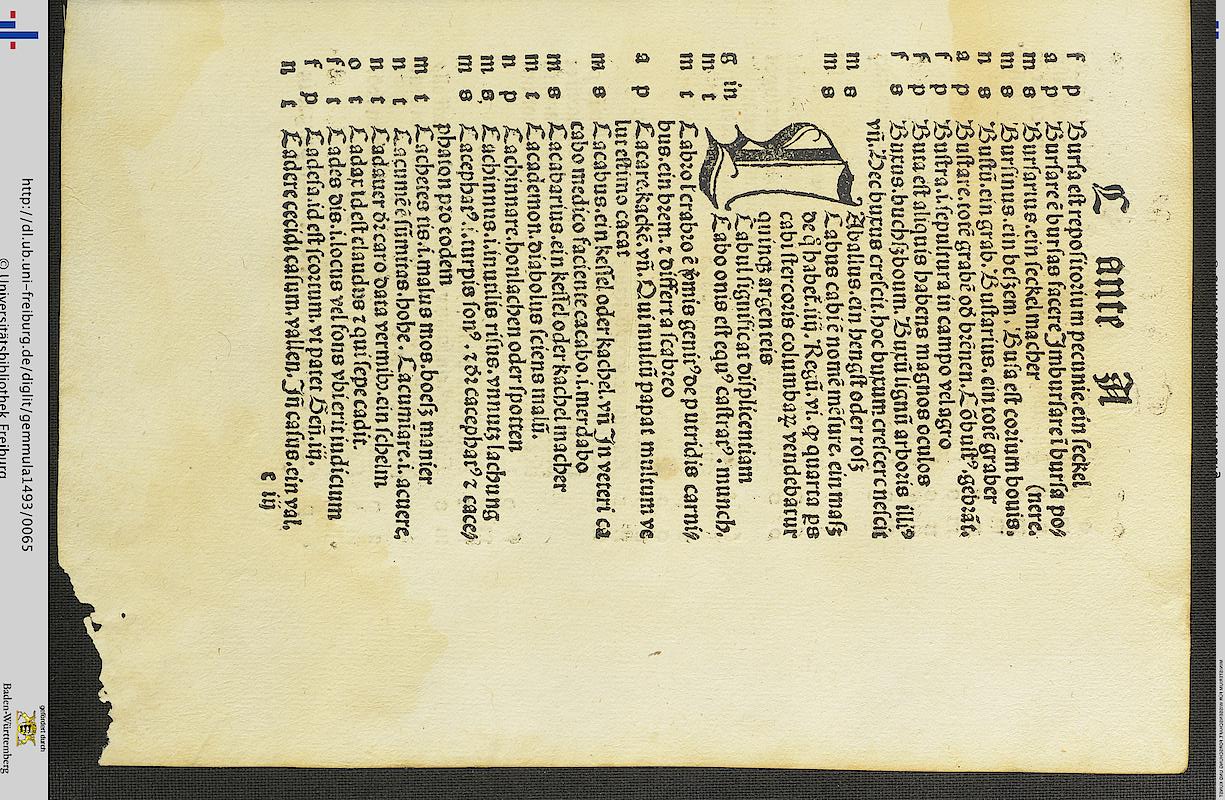 C ante A
f p Bursa est repositorium pecunie. ein seckel
a p Bursare ē bursas facere Imbursare ī bursa po⸗
m s Bursarius. ein seckel macher (nere.
m s Bursinus. ein beltzem. Busa est corium bouis.
n s Bustū. ein grab. Bustarius. ein totē graber
a p Bustare. totē grabē oď brēnen. Cōbust⁹. gebrāt.
f p Bustra. i. sepultura in campo vel agro
f p Buta est aliquis habens magnos oculos
f s Buxus. buchſzboum. Buxū lignū arboris illi⁹
vn̄. Hec buxus crescit. hoc buxum crescere nescit
m s CAballus. ein hengst oder roſz
m s Cabus cabi ē nomē mēsure. ein maſz
de q̄ habet̄. iiij. Regū. vi. ꝙ quarta ps
cabi stercoris columbaꝝ vendebatur
quinqʒ argenteis
g in Cabul significat displicentiam
m t Cabo onis est equ⁹ castrat⁹. munch.
m t Cabo l crabro ē ꝟmis genit⁹ de putridis carni⸗
bus. ein brem. ⁊ differt a scabreo
a p Cacare. kackē. vn̄. Qui multū papat multum ve
lut estimo cacat
m s Cacabus. ein kessel oder kachel. vn̄. In veteri ca
cabo medico faciente cacabo. i. merdabo
m s Cacabarius. ein kessel oder kachel macher
m t Cacademon. diabolus sciens malū.
n p Cachinnare. honlachen oder spotten
m s Cachinnus. i. inutilis risus. vnnutz lachung
m s Cacephat⁹. i. turpis son⁹. ⁊ dr̄ cacephat⁹ ⁊ cace⸗
phaton pro eodem
m t Cachetes tis. i. malus mos. boeſz manier
n t Cacumē ē sūmitas. hohe. Cacumiare. i. acuere.
n t Cadauer dr̄ caro data vermibꝰ. ein schelm
o t Cadax id est claudus ⁊ qui sepe cadit.
f t Cades dis. i. locus vel fons vbi erit iudicium
f p Cadesa. id est scortum. vt patet Gen. iij.
n t Cadere cecidi casum. vallen. In casus. ein val.
c iij
http://dl.ub.uni-freiburg.de/diglit/gemmula1493/0065
© Universitätsbibliothek Freiburg
gefördert durch
Baden-Württemberg